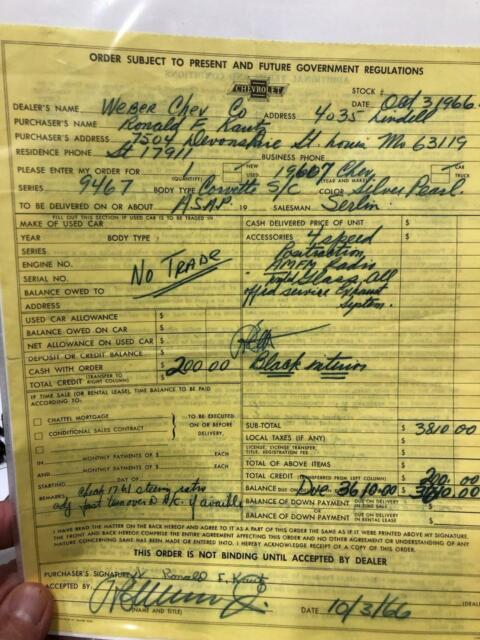 ORDER SUBJECT TO PRESENT AND FUTURE GOVERNMENT REGULATIONS
CHEVROLET
STOCK #
DEALER'S NAME Weber Chev Co ADDRESS 4035 Lindell DATE Oct 3 1966
PURCHASER'S NAME Ronald F Kautz
PURCHASER'S ADDRESS 7504 Devonshire St. Louis Mo 63119
RESIDENCE PHONE St 17911 BUSINESS PHONE
PLEASE ENTER MY ORDER FOR 1 (QUANTITY) NEW USED 1967 Chev (YEAR AND MAKE) CAR TRUCK
SERIES 9467 BODY TYPE Corvette S/C COLOR Silver Pearl
TO BE DELIVERED ON OR ABOUT A.S.A.P. 19 SALESMAN Serlin
FILL OUT THIS SECTION IF USED CAR IS TO BE TRADED IN
MAKE OF USED CAR CASH DELIVERED PRICE OF UNIT $
YEAR BODY TYPE ACCESSORIES 4 speed
SERIES Positraction
ENGINE NO. AMFM Radio
SERIAL NO. NO TRADE Glass, All
BALANCE OWED TO offrd service Exhaust
ADDRESS system.
USED CAR ALLOWANCE $
BALANCE OWED ON CAR $
NET ALLOWANCE ON USED CAR $
DEPOSIT OR CREDIT BALANCE $
CASH WITH ORDER $ 200.00 Black interior
TOTAL CREDIT (TRANSFER TO RIGHT COLUMN) $
IF TIME SALE (OR RENTAL LEASE), TIME BALANCE TO BE PAID
ACCORDING TO:
CHATTEL MORTGAGE
CONDITIONAL SALES CONTRACT
TO BE EXECUTED ON OR BEFORE DELIVERY.
SUB-TOTAL $ 3810.00
LOCAL TAXES (IF ANY) $
LICENSE, LICENSE TRANSFER, TITLE, REGISTRATION FEE $
IN MONTHLY PAYMENTS OF $ EACH TOTAL OF ABOVE ITEMS $
AND MONTHLY PAYMENTS OF $ EACH TOTAL CREDIT (TRANSFERRED FROM LEFT COLUMN) $ 200.00
STARTING DAY OF BALANCE DUE Due 3610.00
REMARKS check BALANCE OF DOWN PAYMENT DUE ON DELIVERY IN TIME SALE $
BALANCE OF DOWN PAYMENT DUE ON DELIVERY IN RENTAL LEASE $
I HAVE READ THE MATTER ON THE BACK HEREOF AND AGREE TO IT AS A PART OF THIS ORDER THE SAME AS IF IT WERE PRINTED ABOVE MY SIGNATURE.
THE FRONT AND BACK HEREOF COMPRISE THE ENTIRE AGREEMENT AFFECTING THIS ORDER AND NO OTHER AGREEMENT OR UNDERSTANDING OF ANY
NATURE CONCERNING SAME HAS BEEN MADE OR ENTERED INTO. I HEREBY ACKNOWLEDGE RECEIPT OF A COPY OF THIS ORDER.
THIS ORDER IS NOT BINDING UNTIL ACCEPTED BY DEALER
PURCHASER'S SIGNATURE X Ronald F. Kautz
ACCEPTED BY: 10/3/66
(NAME AND TITLE) (DATE)